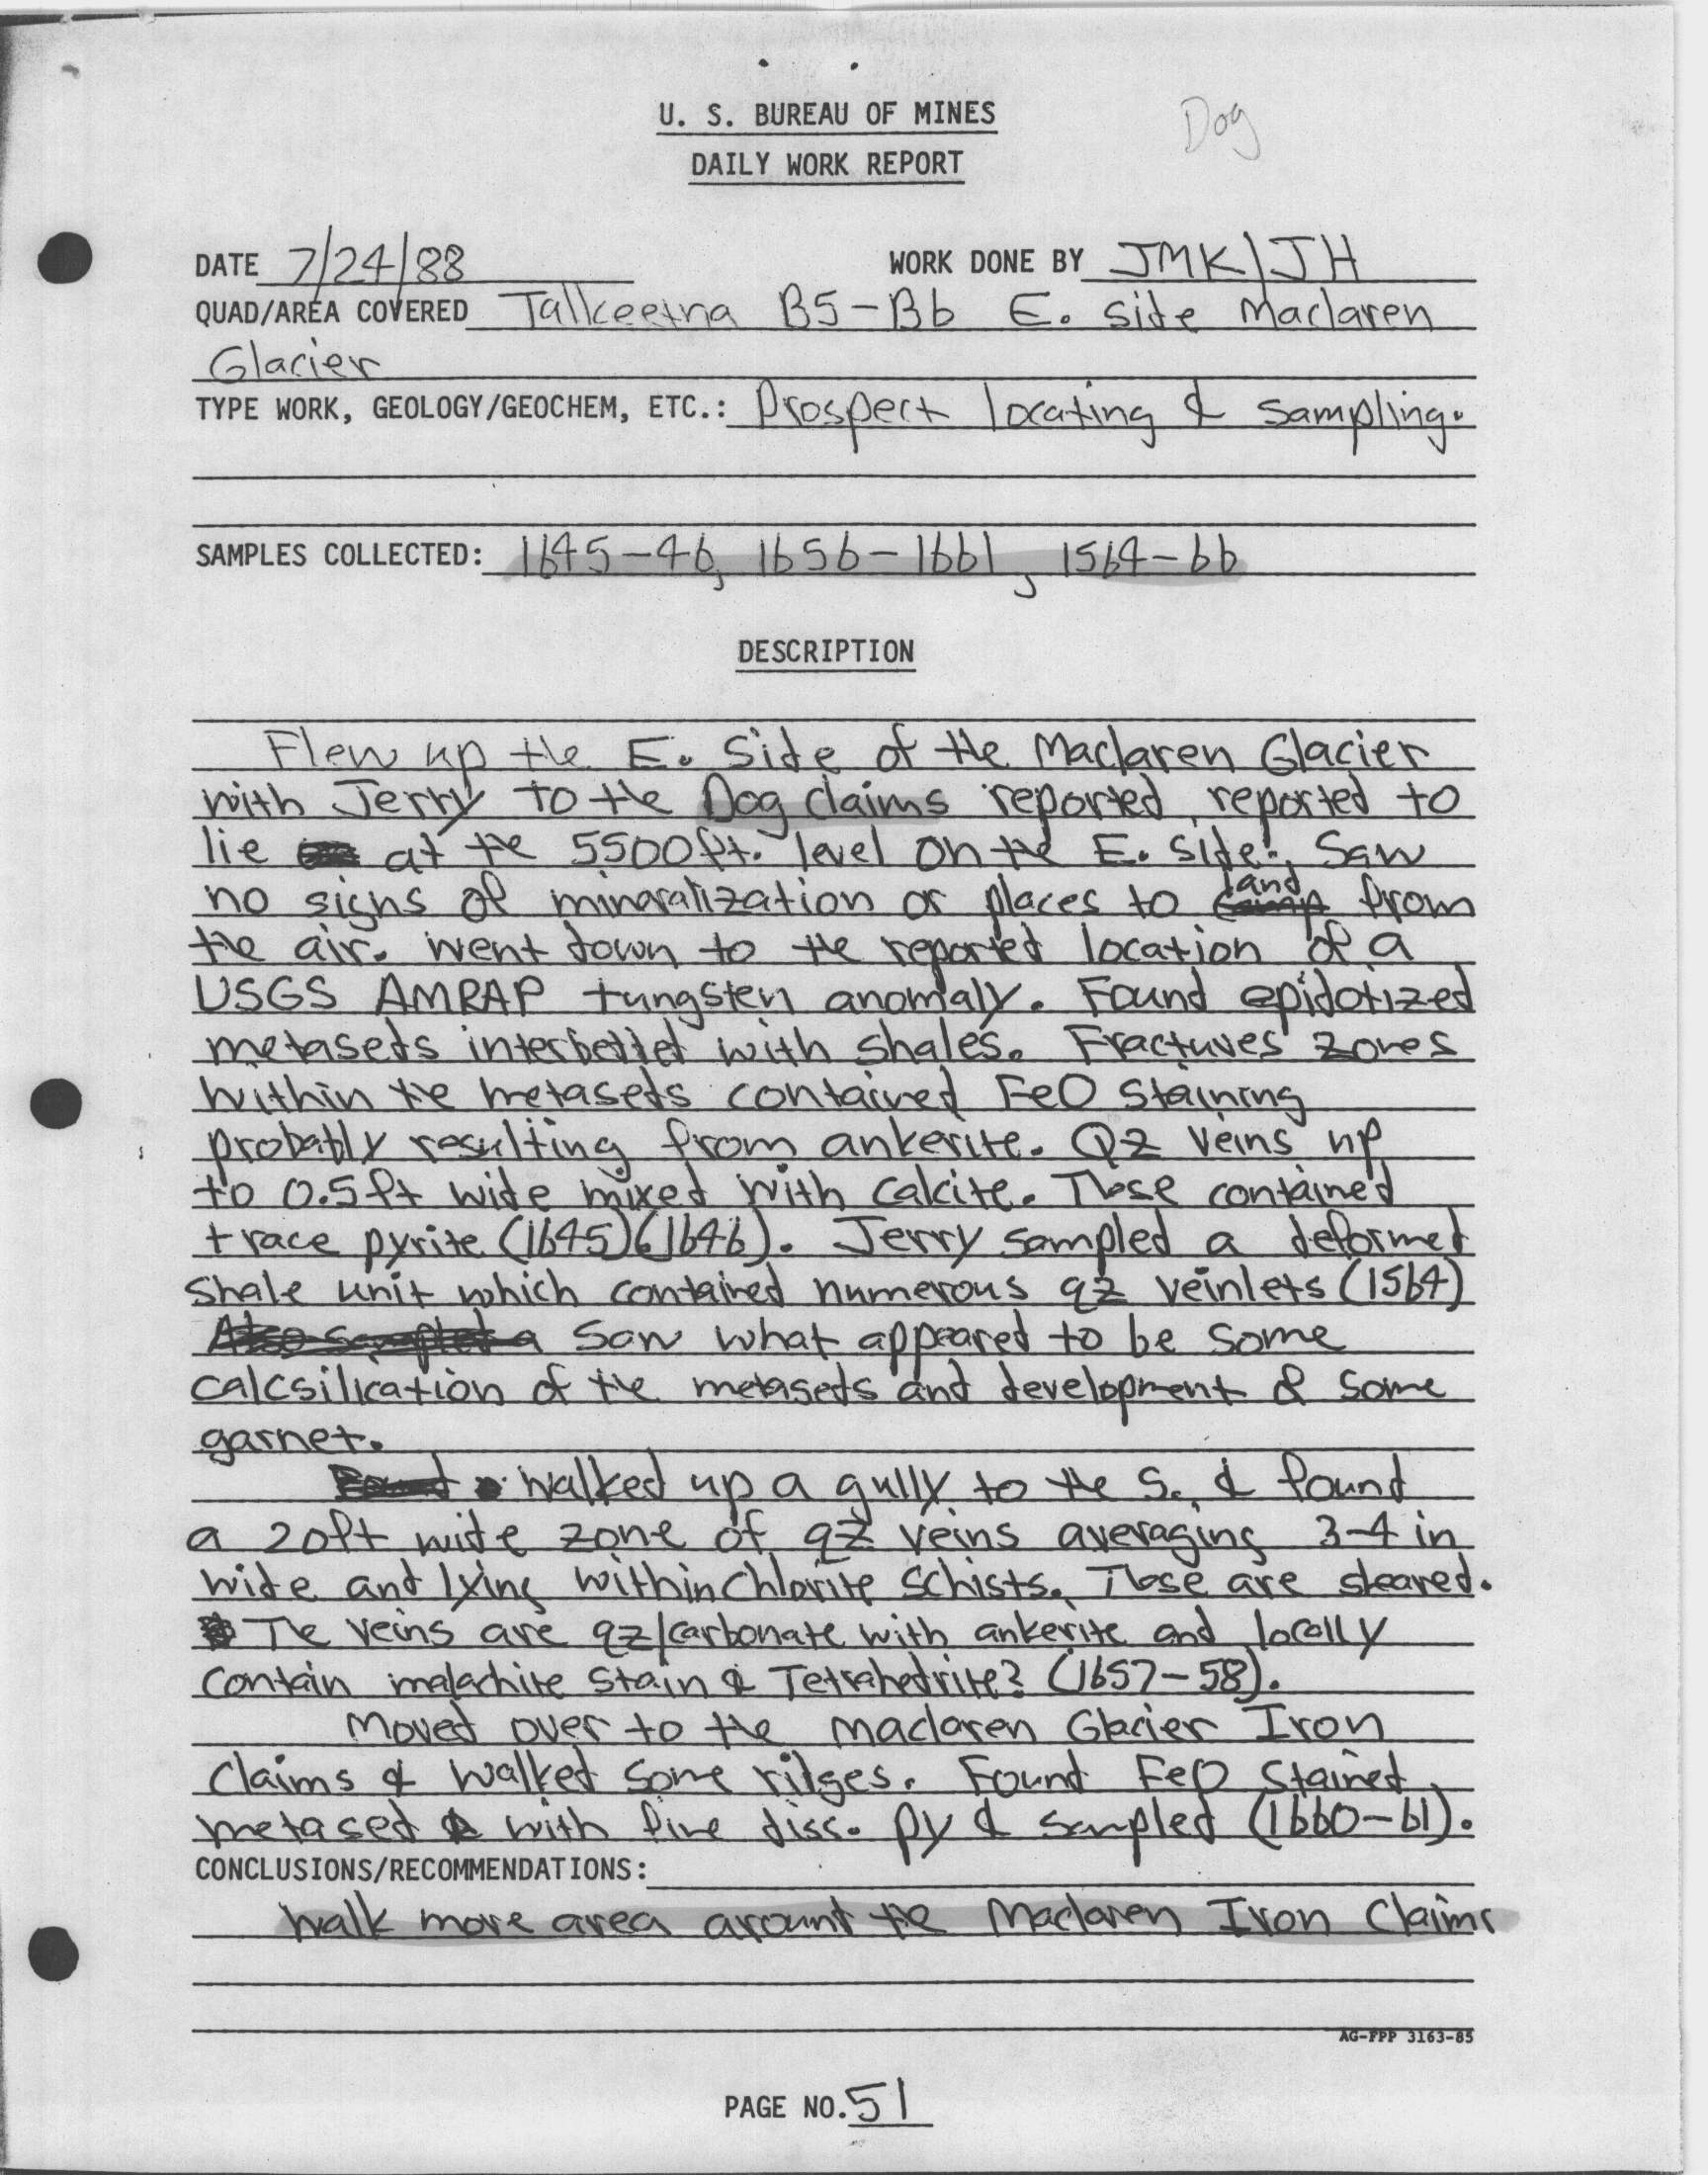 U. S. BUREAU OF MINES
Dog
DAILY WORK REPORT
DATE 7/24/88 WORK DONE BY JMK/JH
QUAD/AREA COVERED Talkeetna B5-B6 E. Side Maclaren
Glacier
TYPE WORK, GEOLOGY/GEOCHEM, ETC.: Prospect locating & sampling.
SAMPLES COLLECTED: 1645-46, 1656-1661, 1564-66
DESCRIPTION
Flew up the E. Side of the Maclaren Glacier
with Jerry to the Dog claims reported, reported to
lie at the 5500ft. level on the E. side. Saw
no signs of mineralization or places to land from
the air. Went down to the reported location of a
USGS AMRAP tungsten anomaly. Found epidotized
metaseds interbedded with shales. Fractures zones
within the metaseds contained FeO staining
probably resulting from ankerite. Qz veins up
to 0.5ft wide mixed with calcite. These contained
trace pyrite (1645)(1646). Jerry sampled a deformed
shale unit which contained numerous qz veinlets (1564)
Also sampled a Saw what appeared to be some
calcsilication of the metaseds and development of some
garnet.
Found Walked up a gully to the S. & found
a 20ft wide zone of qz veins averaging 3-4 in
wide and lying within chlorite schists. These are sheared.
The veins are qz/carbonate with ankerite and locally
contain malachite stain & Tetrahedrite? (1657-58).
Moved over to the Maclaren Glacier Iron
Claims & walked some ridges. Found FeO stained
metased with fine diss. py & sampled (1660-61).
CONCLUSIONS/RECOMMENDATIONS:
Walk more area around the Maclaren Iron Claims
AG-FPP 3163-85
PAGE NO. 51